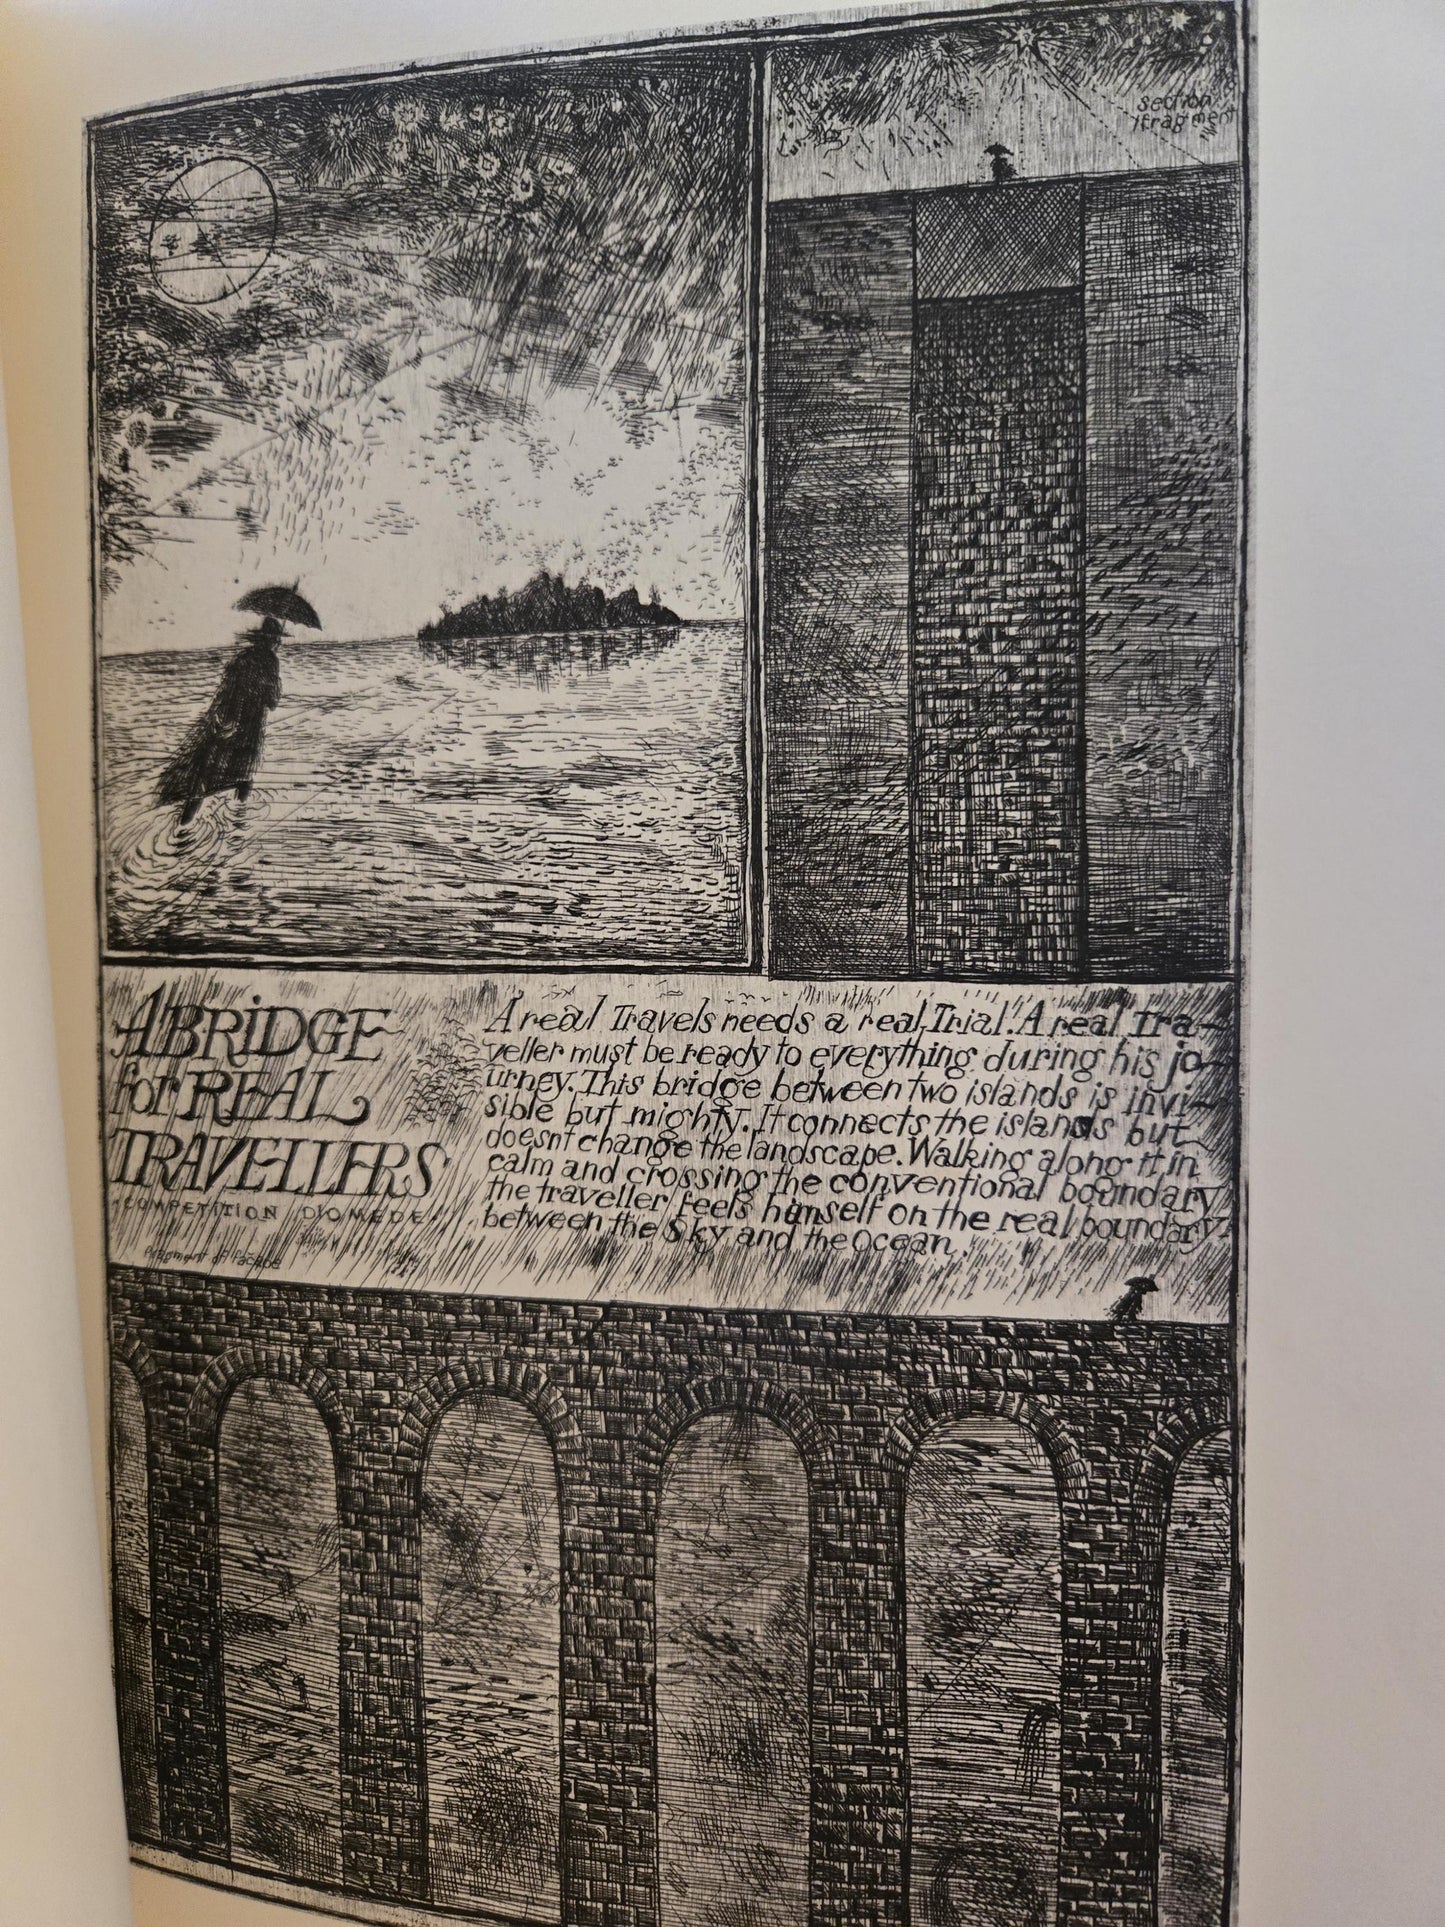 section
fragment
A BRiDGE
for REAL
TRAVELLERS
-COMPETITION DIOMEDE-
Fragment of Facade
A real Travels needs a real Trial. A real tra-
veller must be ready to everything during his jo-
urney. This bridge between two islands is invi-
sible but mighty. It connects the islands but
doesnt change the landscape. Walking along it in
calm and crossing the conventional boundary
the traveller feels himself on the real boundary-
between the Sky and the Ocean.